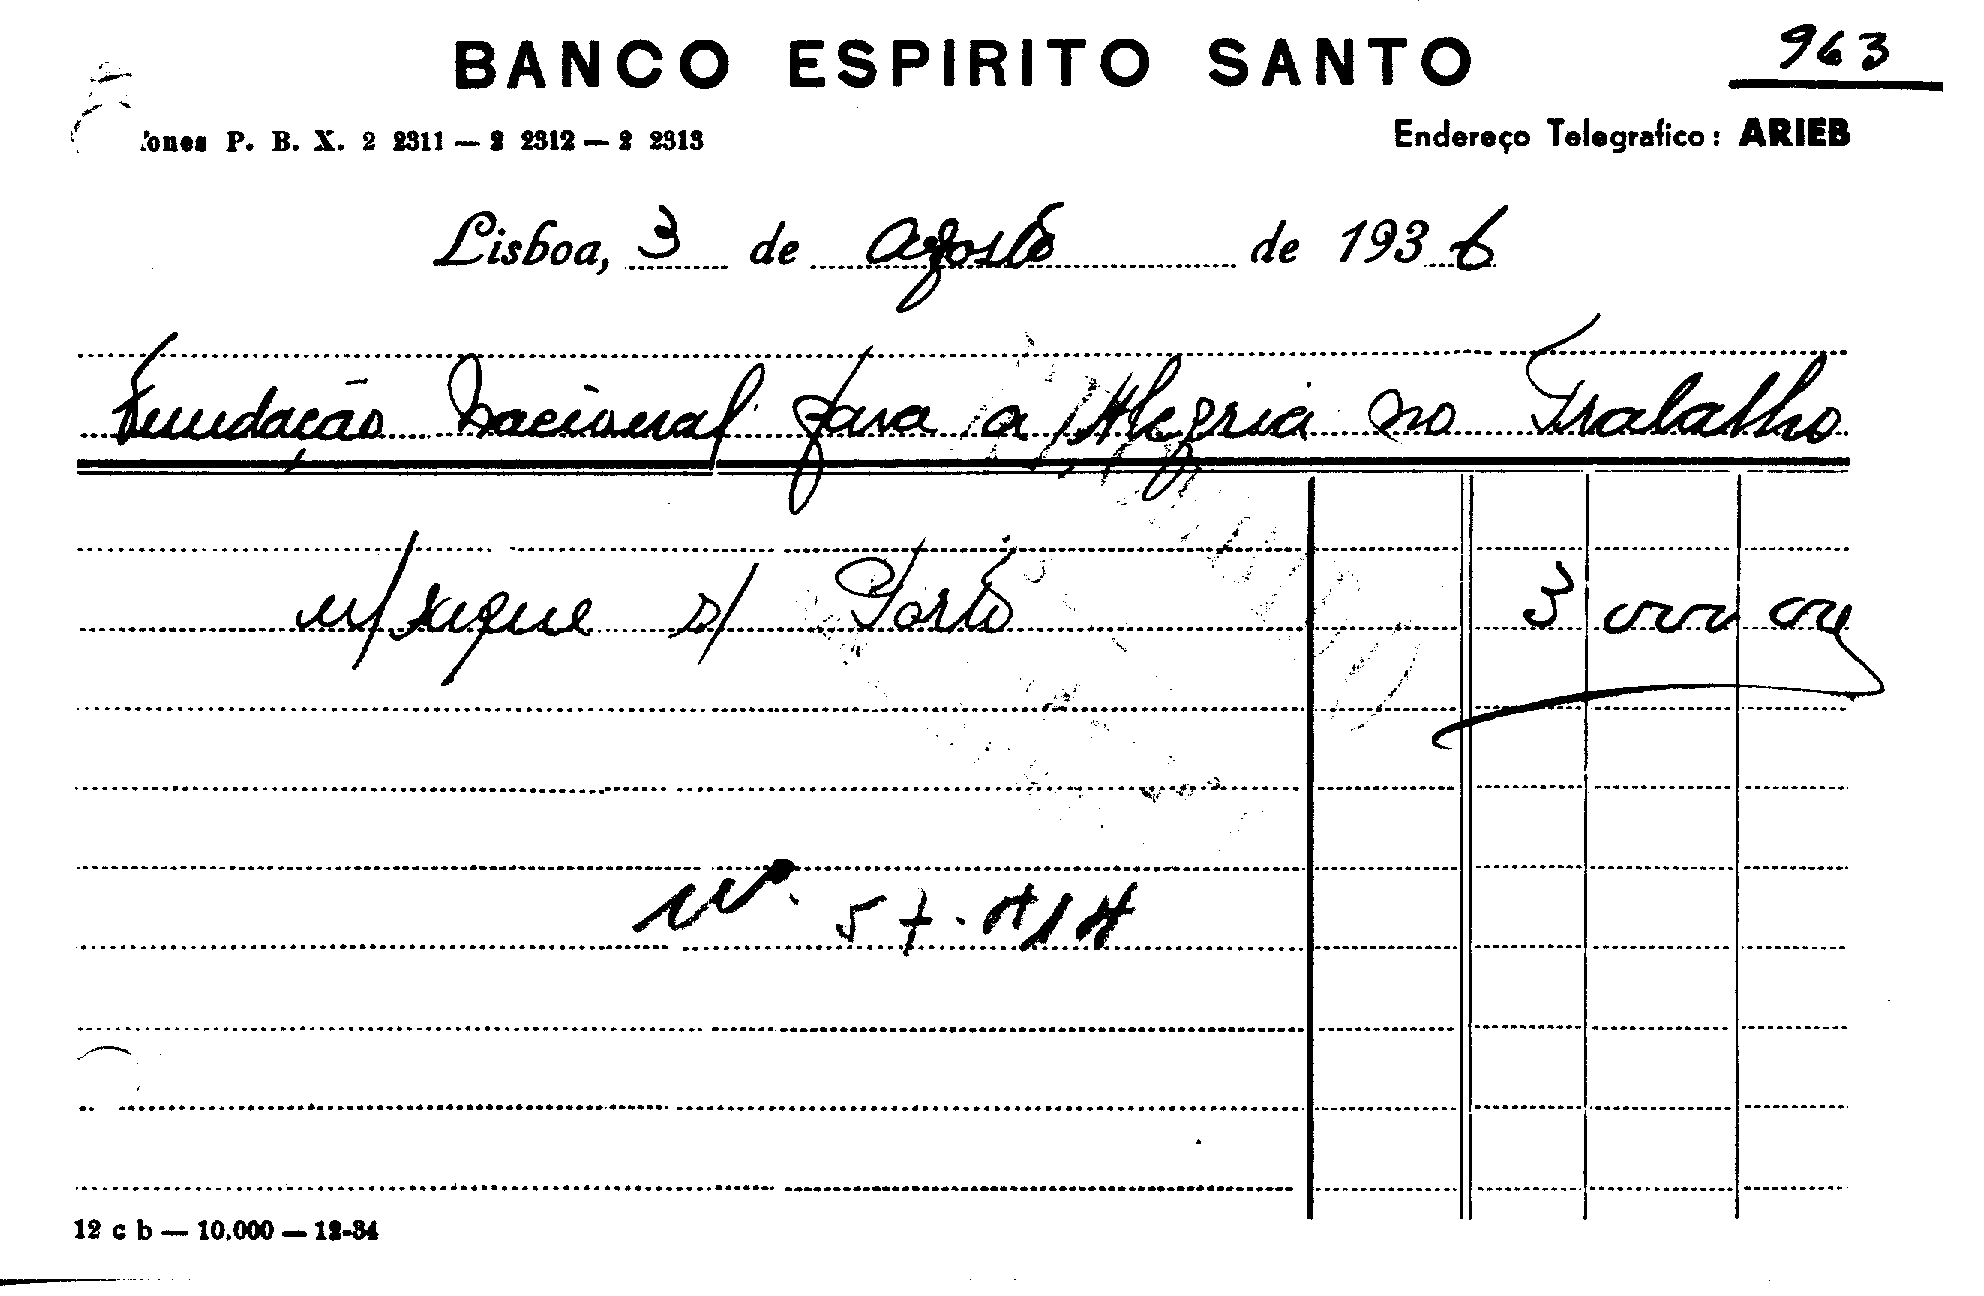 BANCO ESPIRITO SANTO
963
ones P. B. X. 2 2311 — 2 2312 — 2 2313
Endereço Telegrafico: ARIEB
Lisboa, 3 de agosto de 1936
Fundação Nacional para a Alegria no Trabalho
n/ xeque s/ Porto 3 000 00
Nº. 57.
12 c b — 10.000 — 12-34